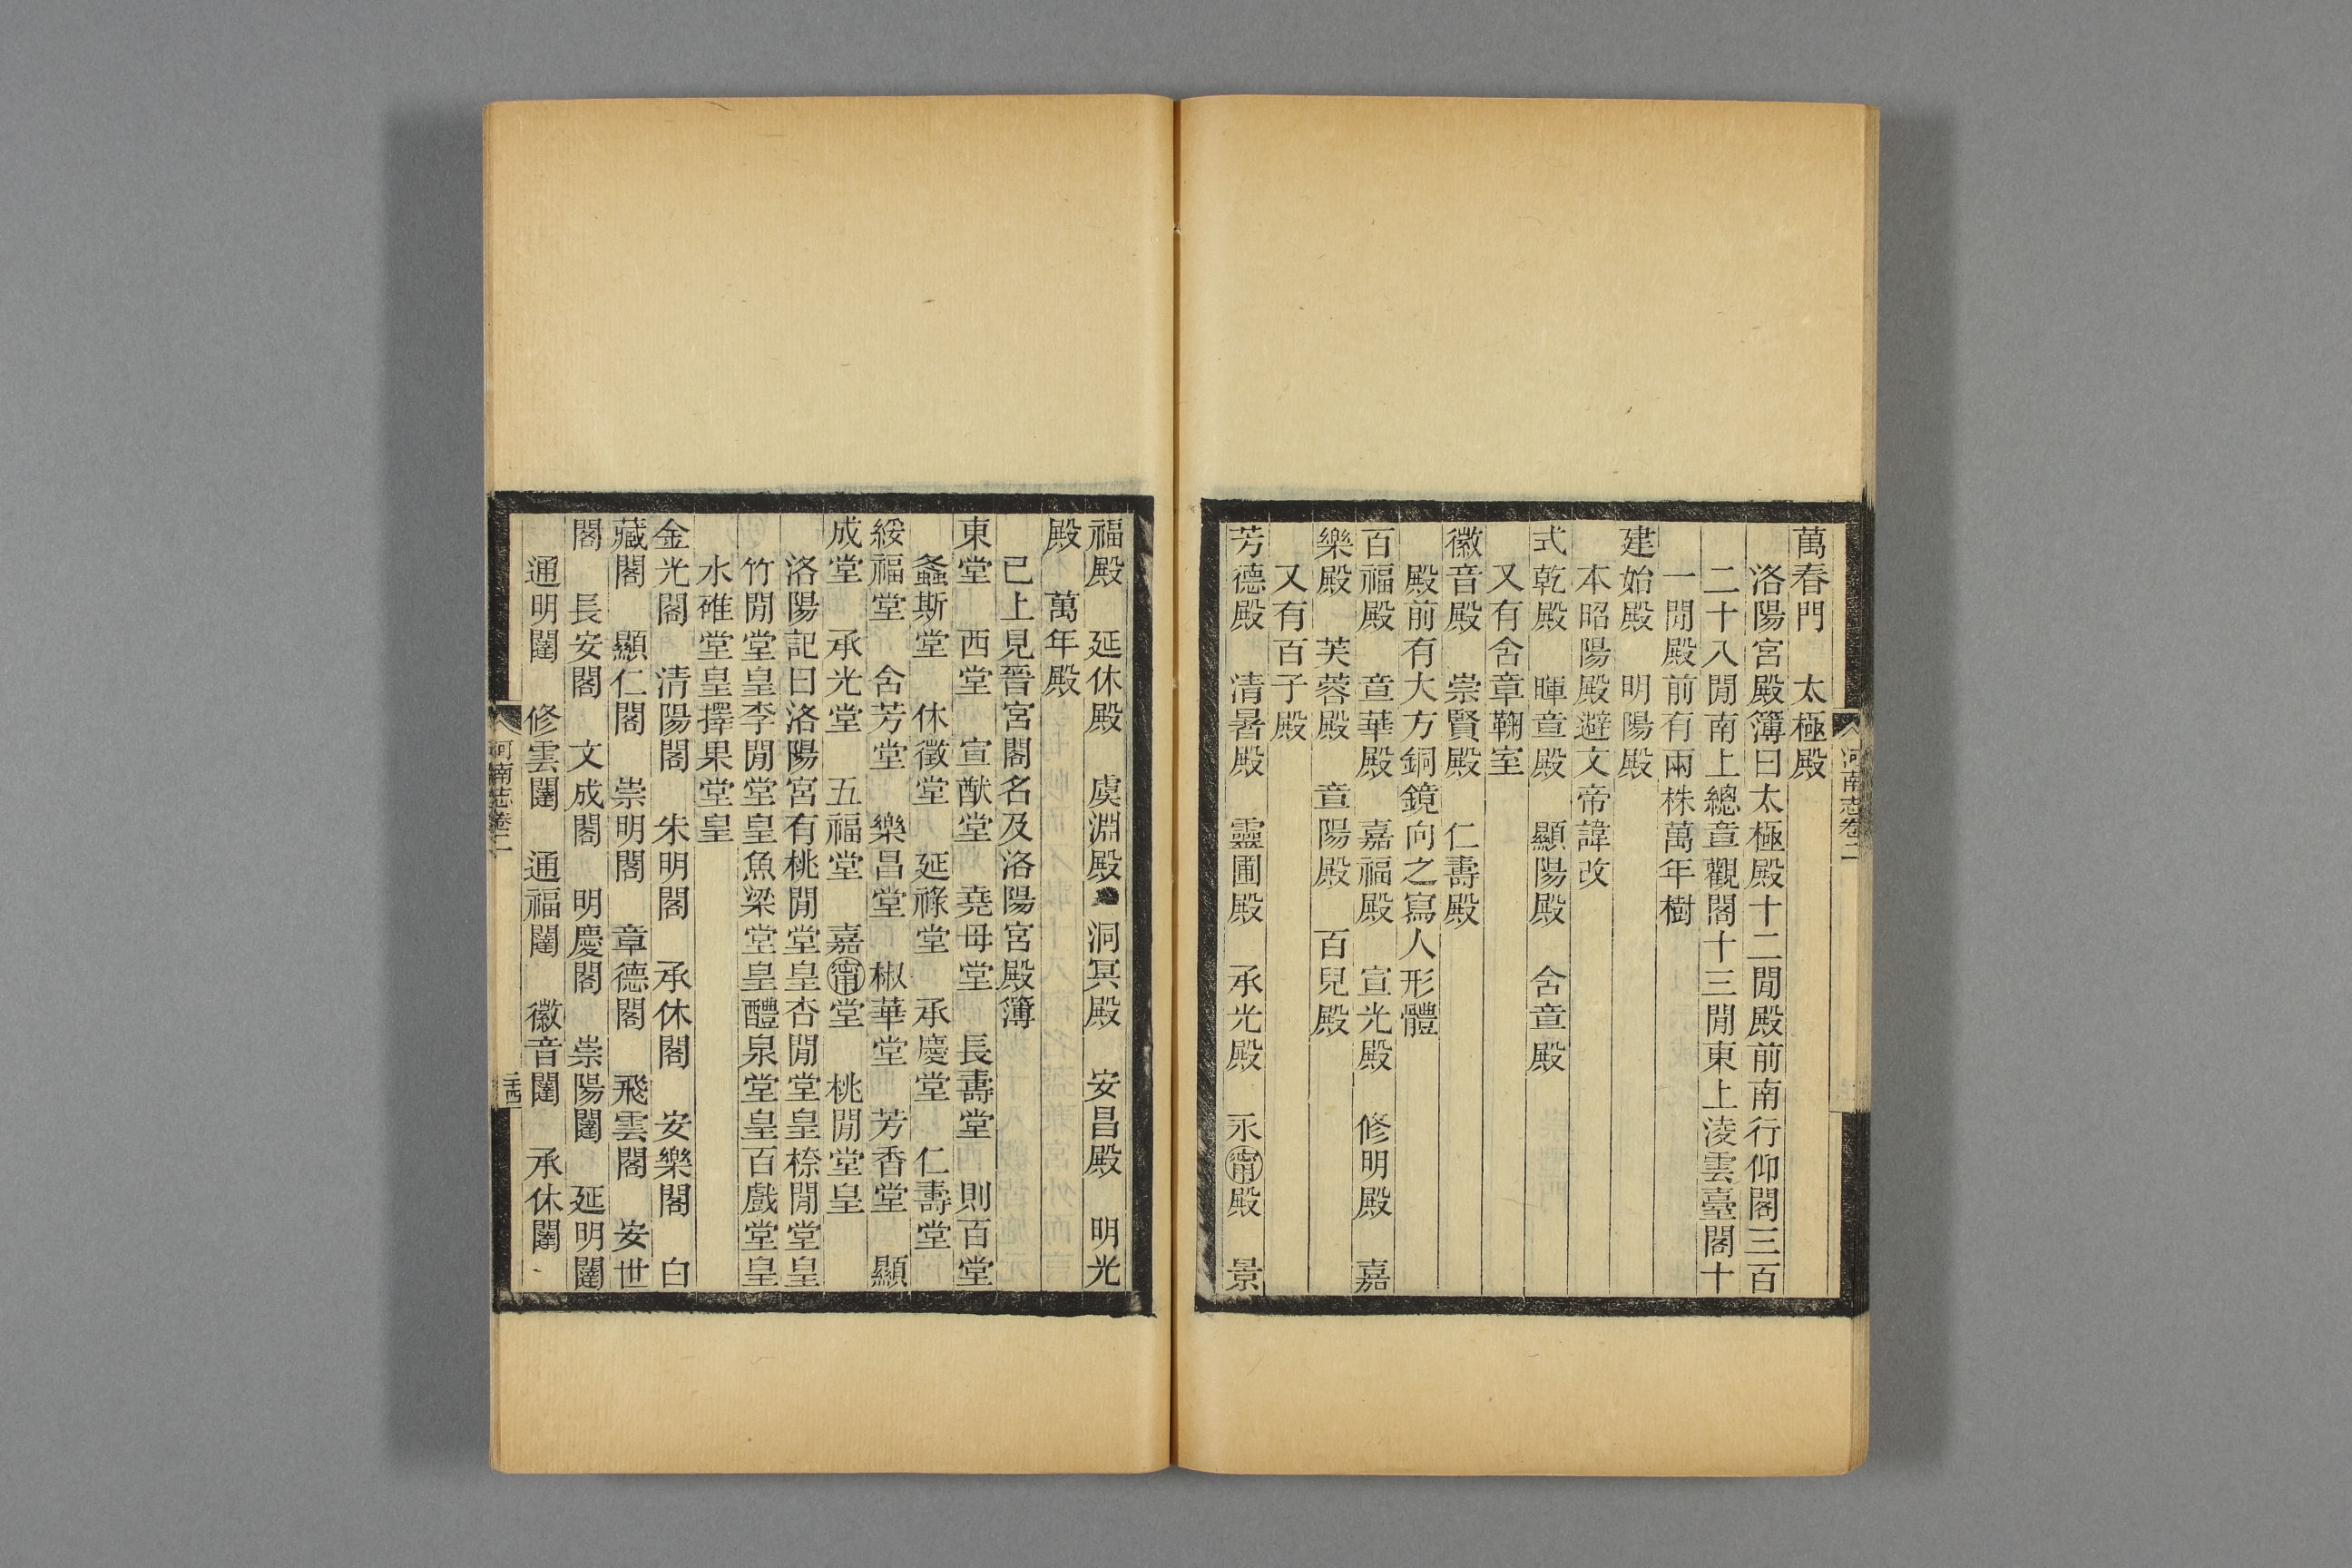 萬春門　太極殿
洛陽宮殿簿曰太極殿十二閒殿前南行仰閣三百
二十八閒南上總章觀閣十三閒東上淩雲臺閣十
一閒殿前有兩株萬年樹
建始殿　明陽殿
本昭陽殿避文帝諱改
式乾殿　暉章殿　顯陽殿　含章殿
又有含章鞠室
徽音殿　崇賢殿　仁壽殿
殿前有大方銅鏡向之寫人形體
百福殿　章華殿　嘉福殿　宣光殿　修明殿　嘉
樂殿　芙蓉殿　章陽殿　百兒殿
又有百子殿
芳德殿　清暑殿　靈圃殿　承光殿　永甯殿　景
河南志卷二
福殿　延休殿　虞淵殿　洞冥殿　安昌殿　明光
殿　萬年殿
已上見晉宮閣名及洛陽宮殿簿
東堂　西堂　宣猷堂　堯母堂　長壽堂　則百堂
螽斯堂　休徵堂　延祿堂　承慶堂　仁壽堂
綏福堂　含芳堂　樂昌堂　椒華堂　芳香堂　顯
成堂　承光堂　五福堂　嘉甯堂　桃閒堂皇
洛陽記曰洛陽宮有桃閒堂皇杏閒堂皇㮈閒堂皇
竹閒堂皇李閒堂皇魚梁堂皇醴泉堂皇百戲堂皇
水碓堂皇擇果堂皇
金光閣　清陽閣　朱明閣　承休閣　安樂閣　白
藏閣　顯仁閣　崇明閣　章德閣　飛雲閣　安世
閣　長安閣　文成閣　明慶閣　崇陽闥　延明闥
通明闥　修雲闥　通福闥　徽音闥　承休闥
河南志卷二